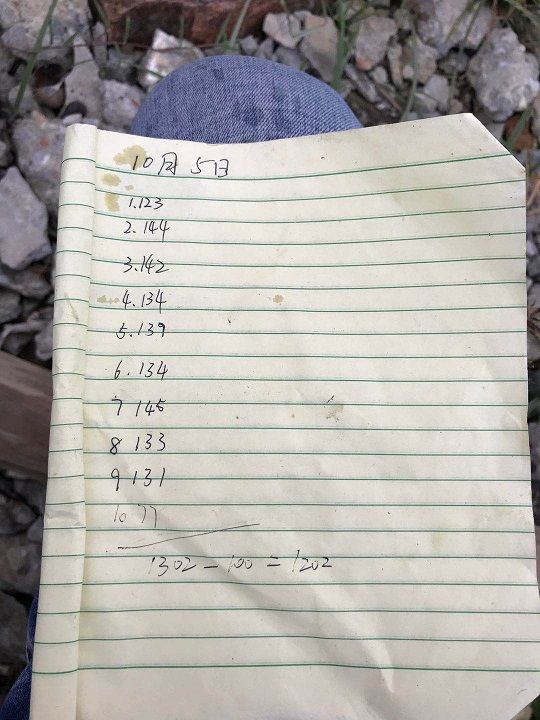 10月5日
1.123
2.144
3.142
4.134
5.139
6.134
7 145
8 133
9 131
10 77
1302-100=1202